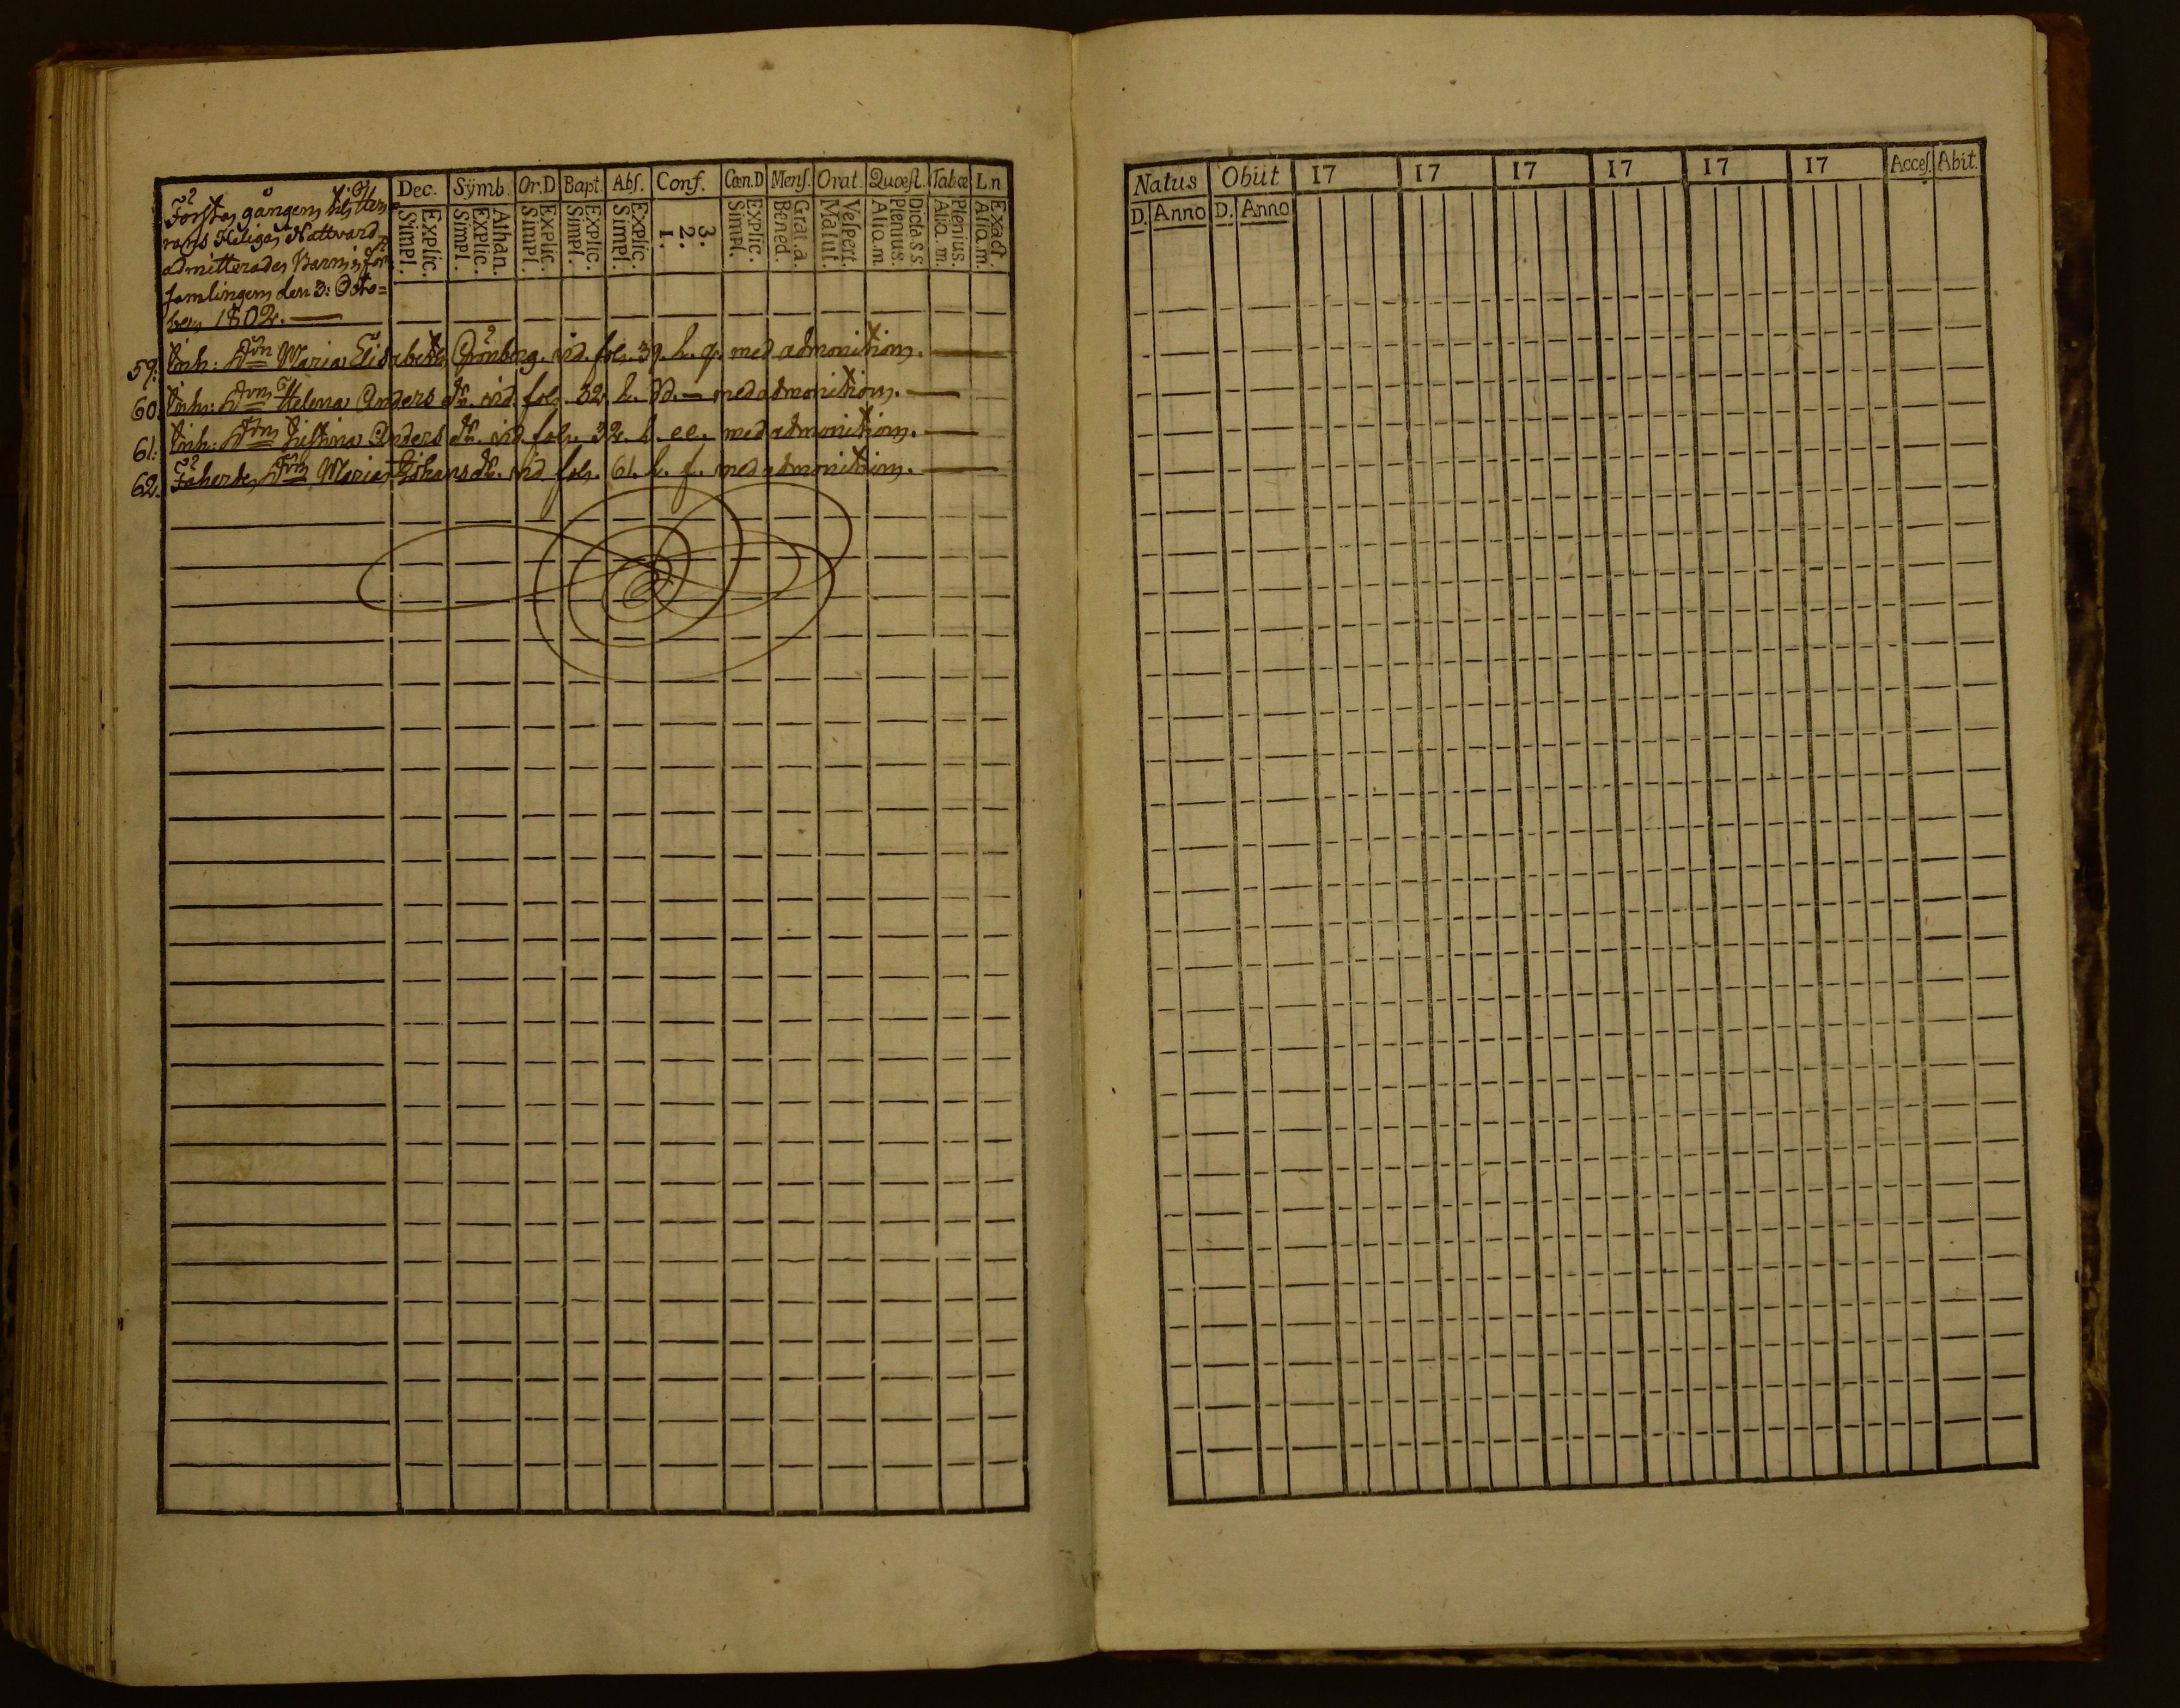 Första gången till Her-
rans Heliga Nattvard
admitterades Barn i för-
samlingen den 3: Octo=
ber 1802.
Dec. Symb. Or.D Bapt. Abs. Conf. Cœn.D Mens. Orat. Quæst. Tabœ L.n
Simpl. Explic. Simpl. Explic. Athan. Simpl. Explic. Simpl. Explic. Simpl. Explic. 1. 2. 3. Simpl. Explic. Bened. Grat.a. Matut. Vespert. Aliq.m Plenius. Dicta S S. Aliq.m. Plenius. Aliq.m. Exact.
59: Inh: Maria Elisabeth Grönberg. vid. fol. 39. l. q. med admonition.
60: Inh: Helena Anders dr. vid. fol. 32. l. med admonition.
61: Inh: Justina Anders dr. vid. fol. 32. l. ee. med admonition.
62. Maria Johans dr. vid fol. 61. l. f. med admonition.
Natus Obiit 17 17 17 17 17 17 Acces. Abit.
D. Anno D. Anno